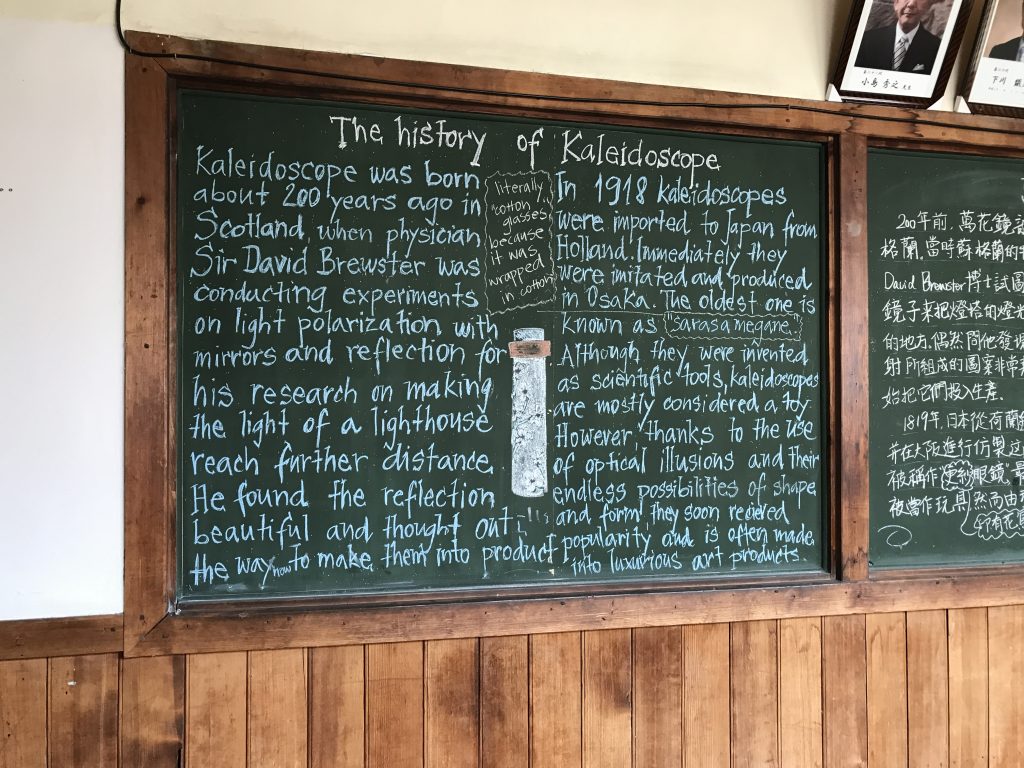 The history of Kaleidoscope
Kaleidoscope was born
about 200 years ago in
Scotland, when physician
Sir David Brewster was
conducting experiments
on light polarization with
mirrors and reflection for
his research on making
the light of a lighthouse
reach further distance.
He found the reflection
beautiful and thought out
the way how to make them into product
literally
"cotton
glasses"
because
it was
wrapped
in cotton
In 1918 kaleidoscopes
were imported to Japan from
Holland. Immediately they
were imitated and produced
in Osaka. The oldest one is
known as "Sarasa megane."
Although they were invented
as scientific tools, kaleidoscopes
are mostly considered a toy.
However, thanks to the use
of optical illusions and their
endless possibilities of shape
and form they soon recieved
popularity and is often made
into luxurious art products
小島秀之
下川
200年前,萬花鏡
格蘭,當時蘇格蘭的
David Brewster博士試圖
鏡子来把燈塔的燈
的地方,偶然間他發現
射所組成的圖案非常
始把它們投入生産.
1819年,日本從荷蘭
并在大阪進行仿製
被稱作 眼鏡
被當作玩具 然而由